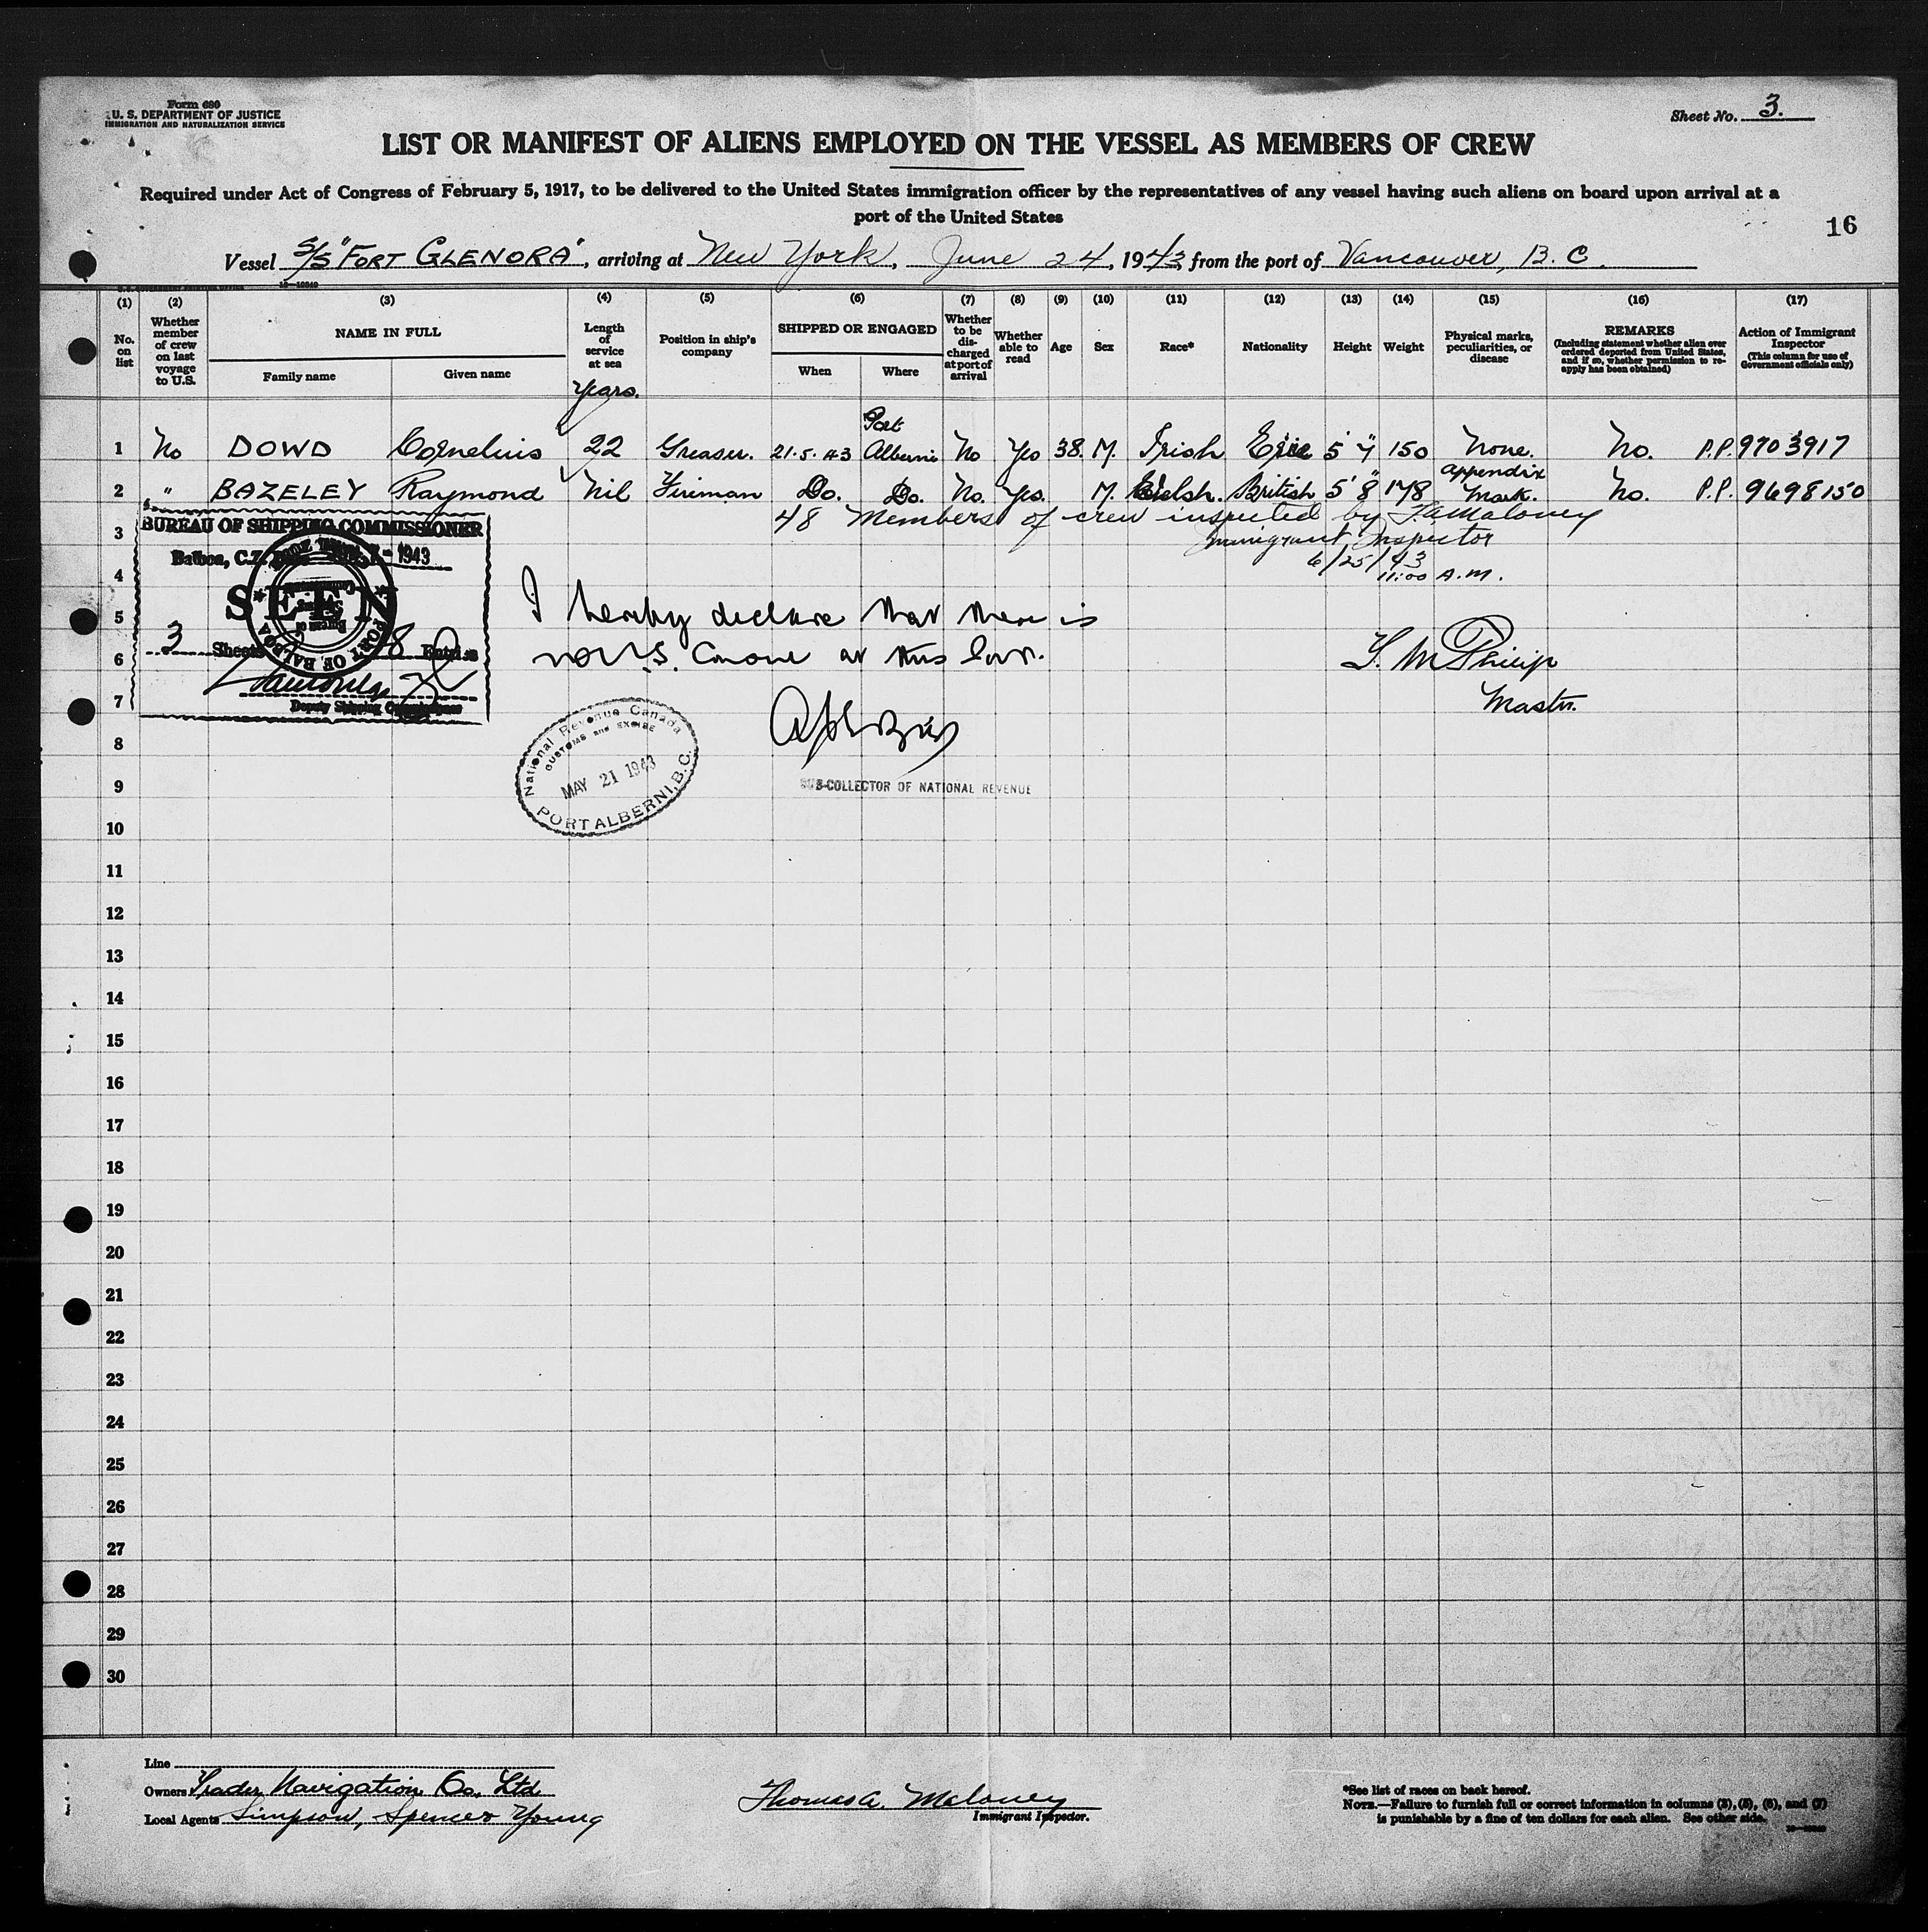 Form 680
U. S. DEPARTMENT OF JUSTICE
IMMIGRATION AND NATURALIZATION SERVICE
Sheet No. 3.
LIST OR MANIFEST OF ALIENS EMPLOYED ON THE VESSEL AS MEMBERS OF CREW
Required under Act of Congress of February 5, 1917, to be delivered to the United States immigration officer by the representatives of any vessel having such aliens on board upon arrival at a
port of the United States
16
Vessel S/S "FORT GLENORA", arriving at New York, June 24, 1943, from the port of Vancouver, B.C.
(1) (2) (3) (4) (5) (6) (7) (8) (9) (10) (11) (12) (13) (14) (15) (16) (17)
No. on list
Whether member of crew on last voyage to U.S.
NAME IN FULL
Family name
Given name
Length of service at sea
Years.
Position in ship's company
SHIPPED OR ENGAGED
When
Where
Whether to be discharged at port of arrival
Whether able to read
Age
Sex
Race*
Nationality
Height
Weight
Physical marks, peculiarities, or disease
REMARKS
(Including statement whether alien ever ordered deported from United States, and if so, whether permission to reapply has been obtained)
Action of Immigrant Inspector
(This column for use of Government officials only)
1 No DOWD Cornelius 22 Greaser. 21-5-43 Port Alberni No Yes 38. M. Irish Eire 5' 7" 150 None. No. P.P. 9703917
2 " BAZELEY Raymond Nil Fireman Do. Do. No. Yes. M. Welsh. British 5' 8" 178 appendix Mark. No. P.P. 9698150
48 Members of crew inspected by T.A. Maloney
Immigrant Inspector
6/25/43
11:00 A.M.
BUREAU OF SHIPPING COMMISSIONER
Balboa, C.Z. 1943
SEEN
PORT OF BALBOA
3 Sheets 8 Entries
Deputy Shipping Commissioner
I hereby declare that there is
no U.S. Consul at this Port.
Philip
Master.
National Revenue Canada
CUSTOMS AND EXCISE
MAY 21 1943
PORT ALBERNI, B.C.
SUB-COLLECTOR OF NATIONAL REVENUE
3
4
5
6
7
8
9
10
11
12
13
14
15
16
17
18
19
20
21
22
23
24
25
26
27
28
29
30
Line
Owners Trader Navigation Co. Ltd
Local Agents Simpson, Spencer Young
Thomas A. Maloney
Immigrant Inspector.
*See list of races on back hereof.
NOTE.—Failure to furnish full or correct information in columns (3), (5), (6), and (7)
is punishable by a fine of ten dollars for each alien. See other side.